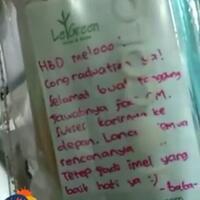 LeGreen
HBD melooo :
Congraduation ya!
Selamat buat tanggung
jawabnya jadi M.
Sukses karirnya ke
depan. Lancar semua
rencananya
Tetep jadi imel yang
baik hati ya :)
- baba -